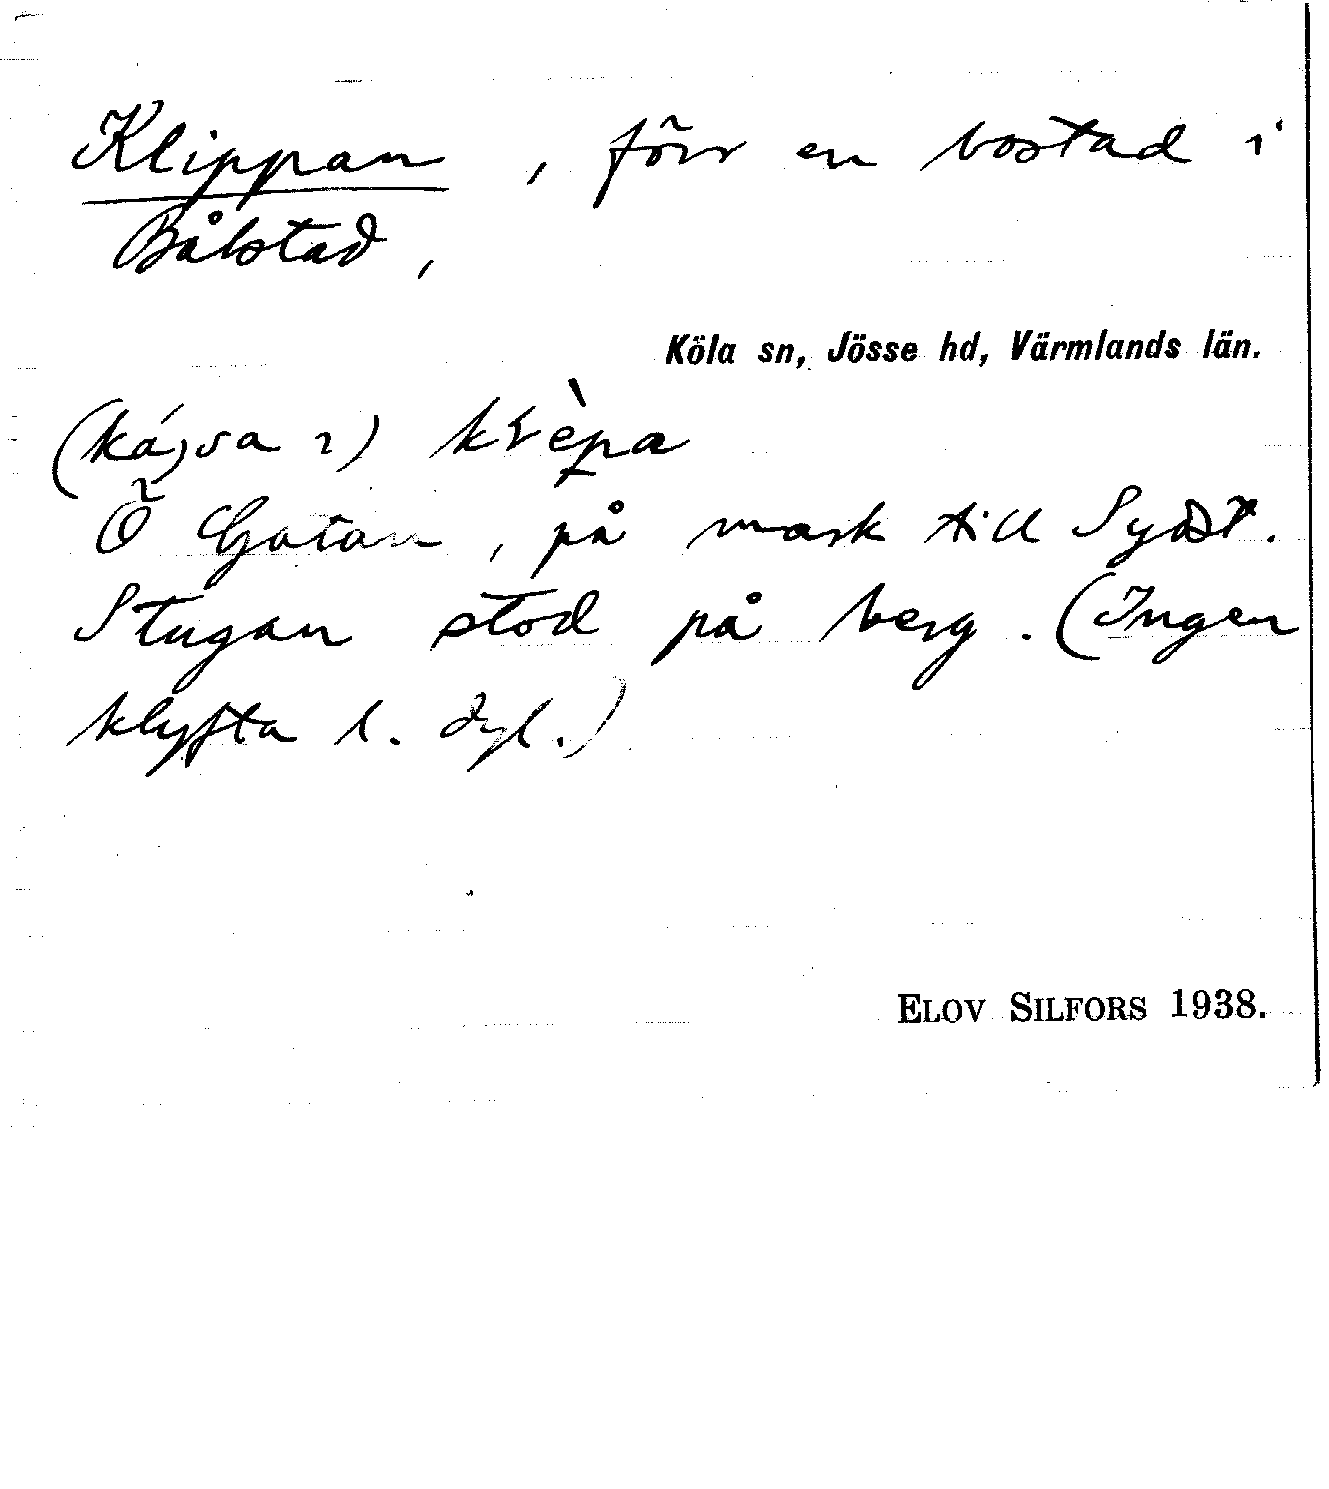 Klippan, förr en bostad i
Bålstad,
Köla sn, Jösse hd, Värmlands län.
(kájsa ɿ) klèpa
Ö Gatan, på mark till Sydöst.
Stugan stod på berg. (Ingen
klyfta l. dyl.)
ELOV SILFORS 1938.